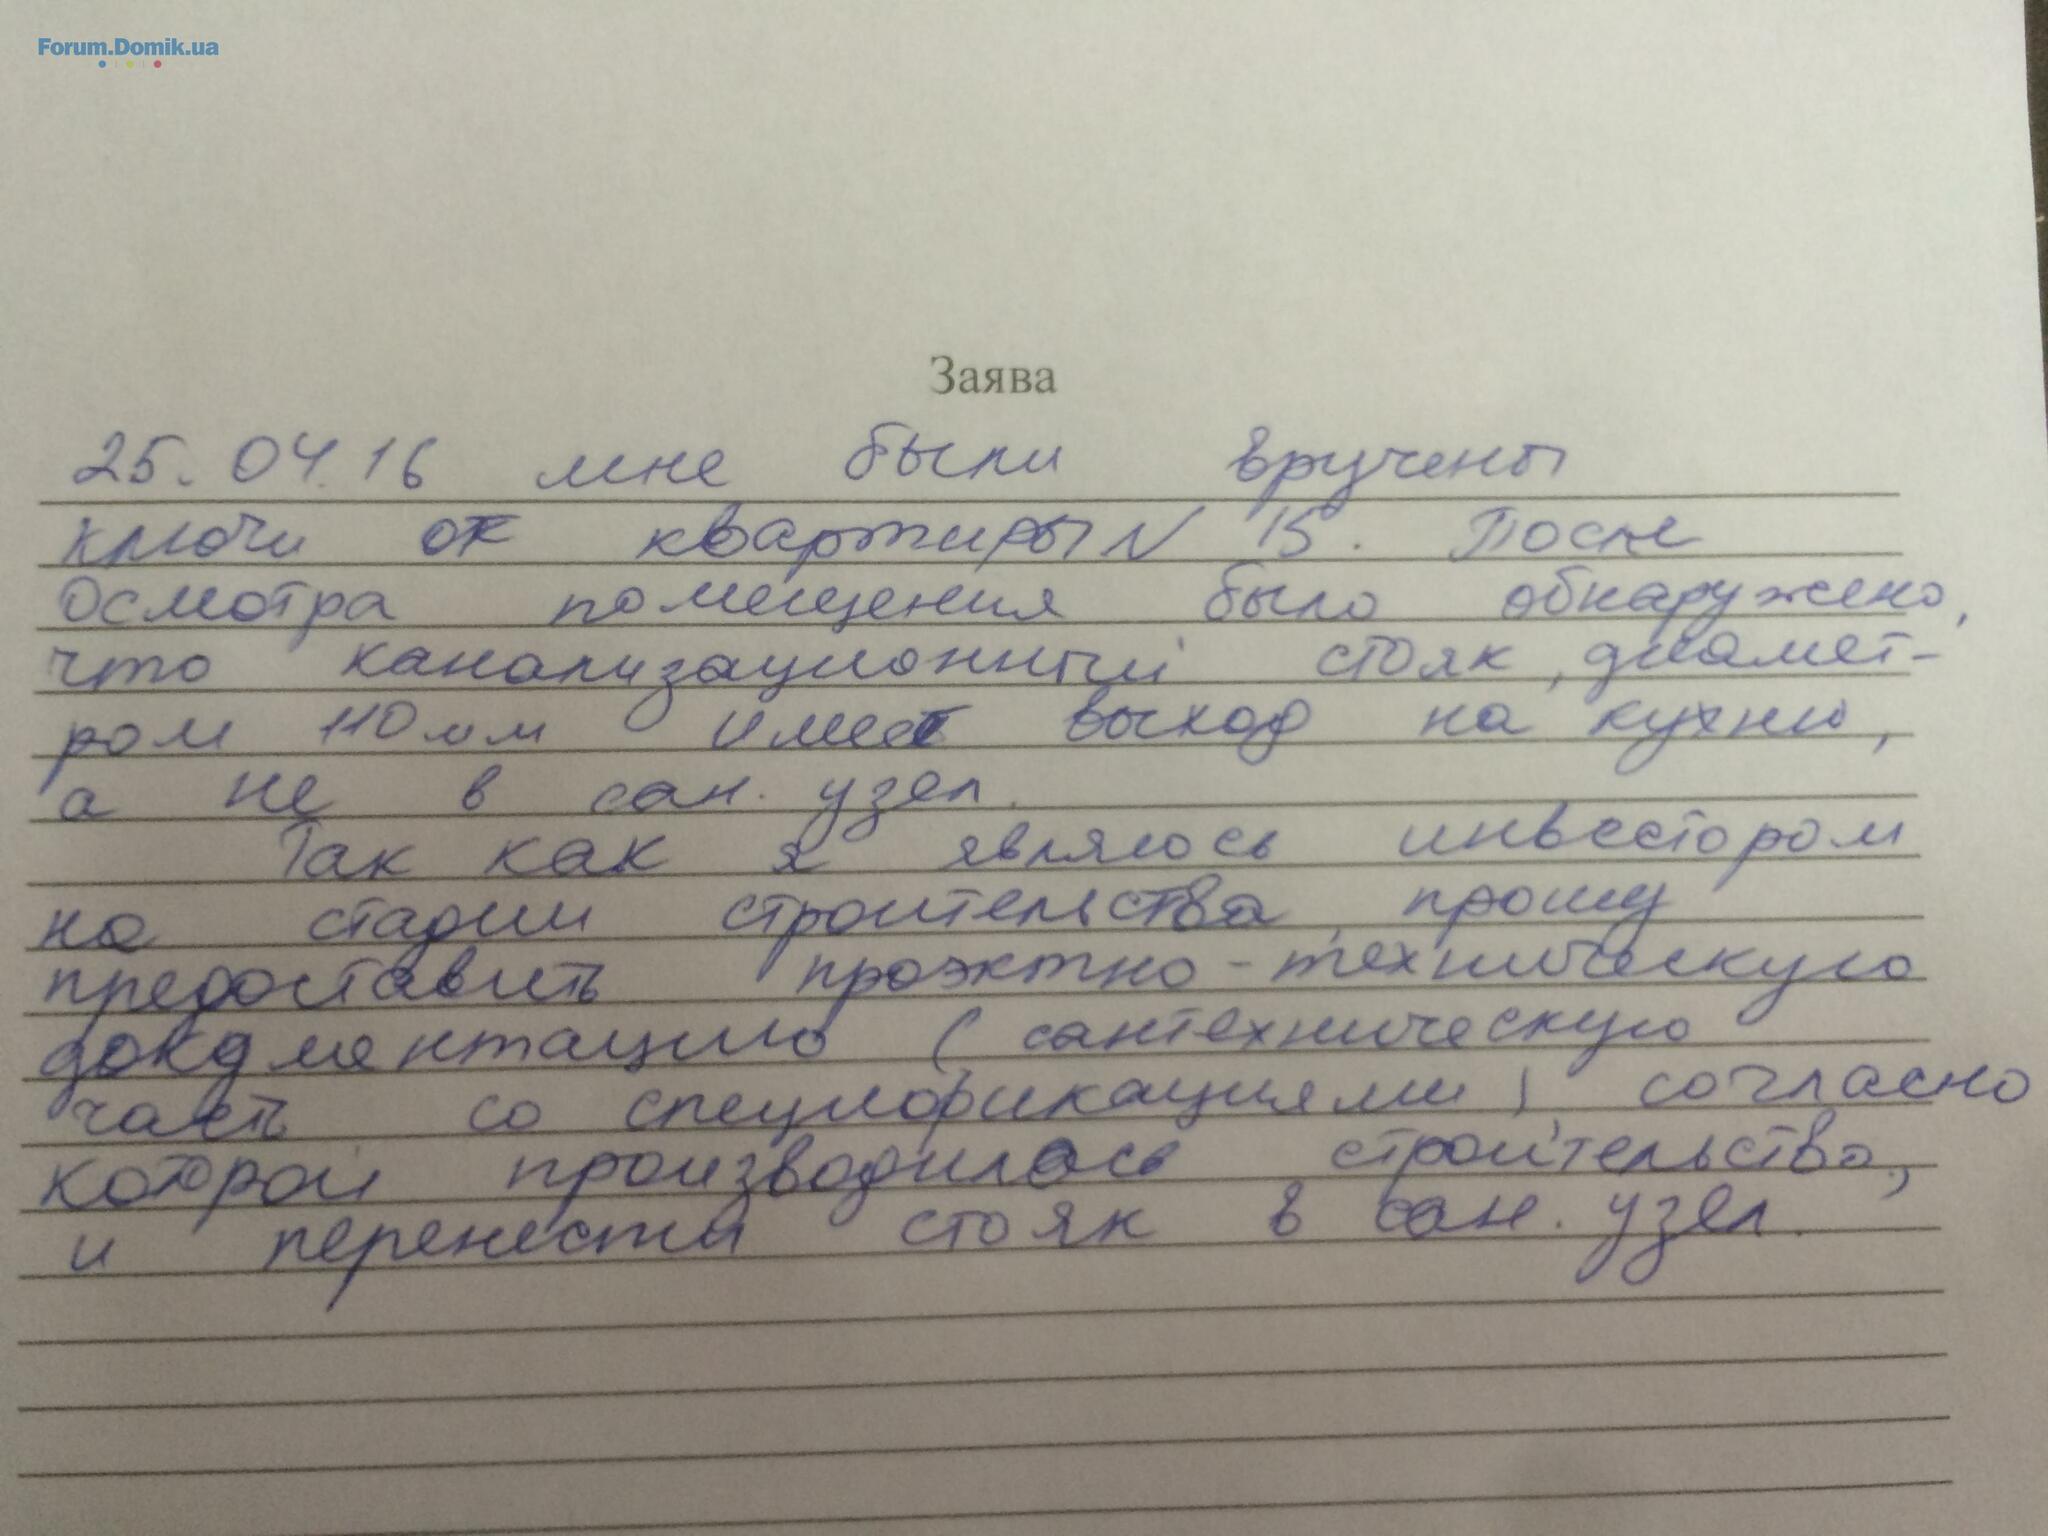 Forum.Domik.ua
Заява
25.04.16 мне были вручены
ключи от квартиры N 15. После
осмотра помещения было обнаружено,
что канализационный стояк, диамет-
ром 110 мм имеет выход на кухню,
а не в сан. узел.
Так как я являюсь инвестором
на стадии строительства, прошу
предоставить проэктно-техническую
документацию (сантехническую
часть со спецификациями), согласно
которой производилось строительство,
и перенести стояк в сан. узел.